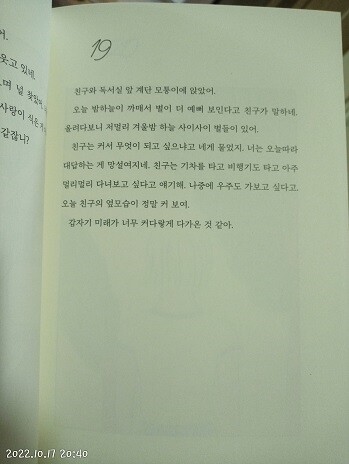 어.
웃고 있네.
며 널 찾았
사랑이 식은
같잖니?
19
친구와 독서실 앞 계단 모퉁이에 앉았어.
오늘 밤하늘이 까매서 별이 더 예뻐 보인다고 친구가 말하네.
올려다보니 저멀리 겨울밤 하늘 사이사이 별들이 있어.
친구는 커서 무엇이 되고 싶으냐고 네게 물었지. 너는 오늘따라
대답하는 게 망설여지네. 친구는 기차를 타고 비행기도 타고 아주
멀리멀리 다녀보고 싶다고 얘기해. 나중에 우주도 가보고 싶다고.
오늘 친구의 옆모습이 정말 커 보여.
갑자기 미래가 너무 커다랗게 다가온 것 같아.
2022.10.17 20:40